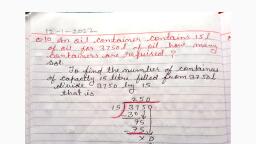 12-1-2022
Q.10 An oil container contains 15 l
of oil for 3750 l of oil how many
containers are required?
Sol.
To find the number of container
of capacity 15 litre filled from 3750 l
divide 3750 by 15
that is
250
15 3750
30
75
75
x 0